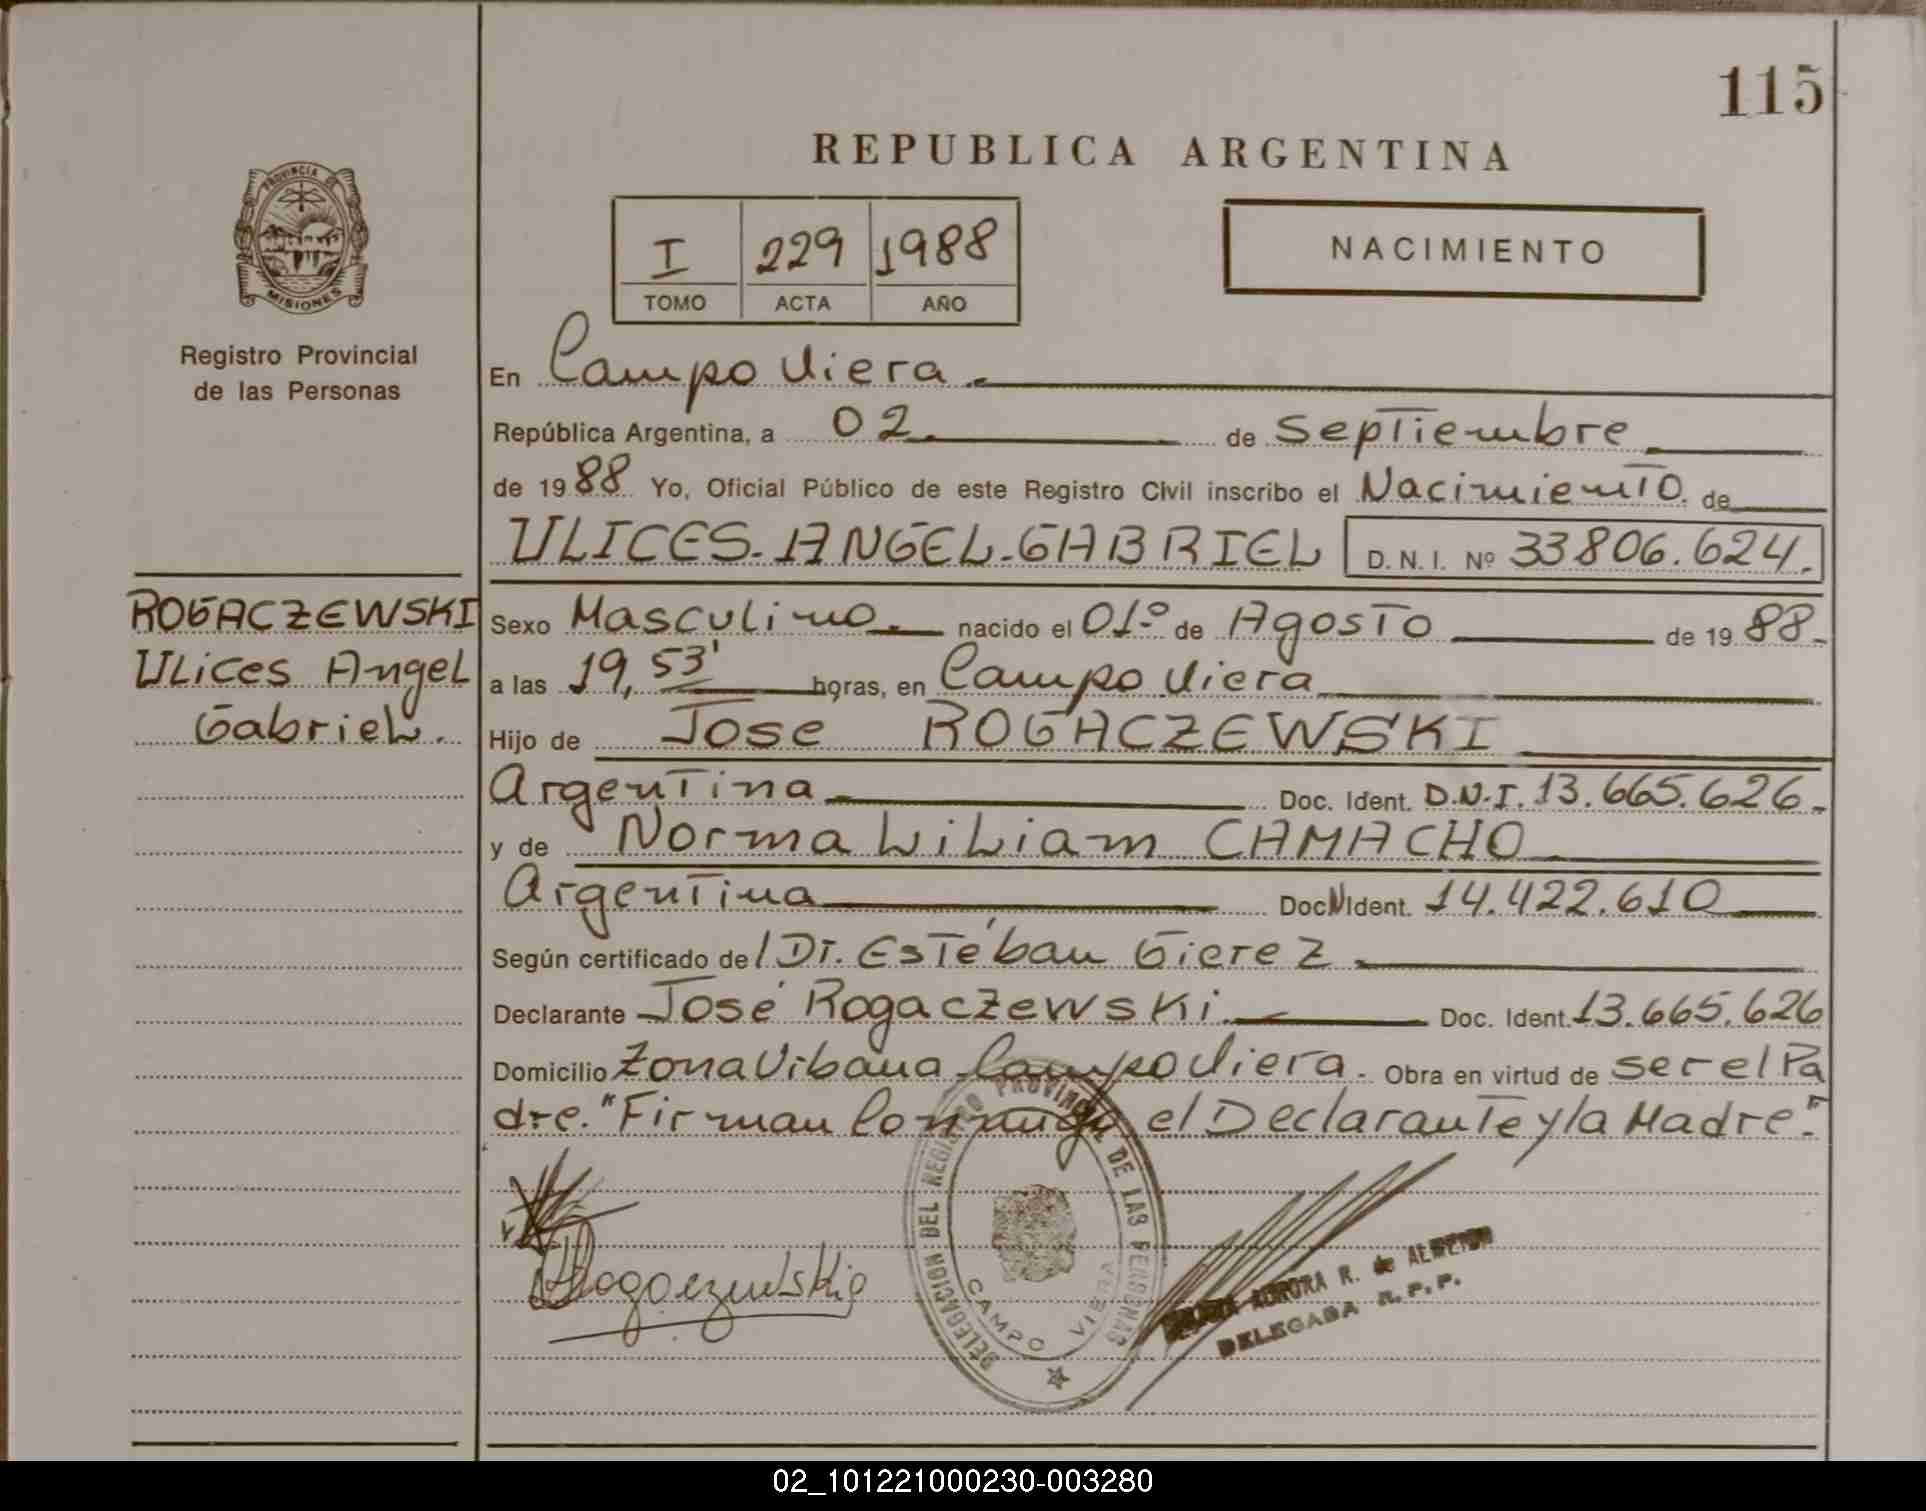 115
REPUBLICA ARGENTINA
PROVINCIA DE
MISIONES
Registro Provincial
de las Personas
I 229 1988
TOMO ACTA AÑO
NACIMIENTO
En Campo Viera.
República Argentina, a 02. de Septiembre
de 1988 Yo, Oficial Público de este Registro Civil inscribo el Nacimiento de
ULICES-ANGEL-GABRIEL D. N. I. Nº 33806.624.
ROGACZEWSKI
Ulices Angel
Gabriel.
Sexo Masculino. nacido el 01º de Agosto de 1988.
a las 19,53' horas, en Campo Viera
Hijo de Jose ROGACZEWSKI
Argentina Doc. Ident. D.N.I. 13.665.626.
y de Norma Liliam CAMACHO
Argentina Doc. Ident. 14.422.610
Según certificado del Dr. Estéban Gierez.
Declarante José Rogaczewski. Doc. Ident. 13.665.626
Domicilio Zona Urbana Campo Viera. Obra en virtud de ser el Pa
dre. "Firman Conmigo el Declarante y la Madre".
DELEGACION DEL REGISTRO PROVINCIAL DE LAS PERSONAS
CAMPO VIERA
AURORA R. de ALMEIDA
DELEGADA R. P. P.
02_101221000230-003280